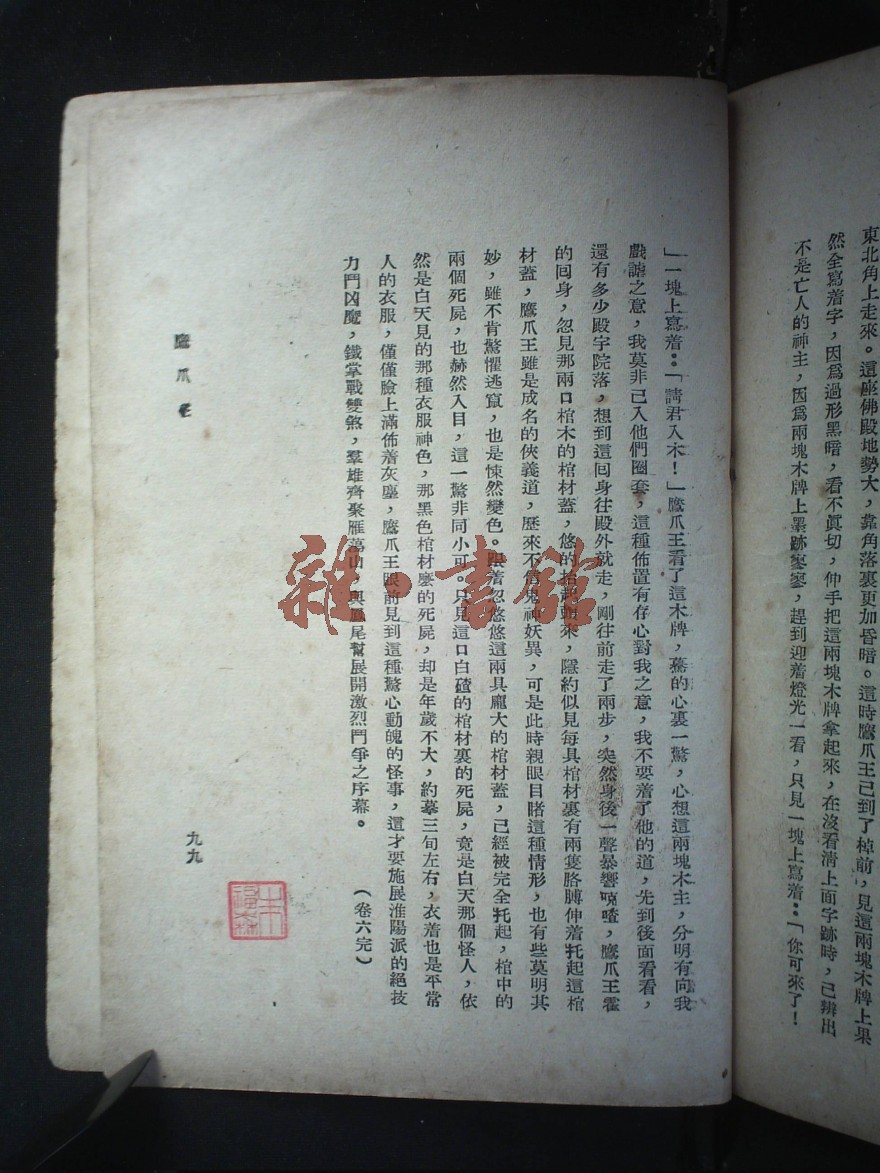 東北角上走來。這座佛殿地勢大，靠角落裏更加昏暗。這時鷹爪王已到了棹前，見這兩塊木牌上果
然全寫着字，因爲過形黑暗，看不眞切，伸手把這兩塊木牌拿起來，在沒看清上面字跡時，已辨出
不是亡人的神主，因爲兩塊木牌上墨跡寥寥，趕到迎着燈光一看，只見一塊上寫着：「你可來了！
」一塊上寫着：「請君入木！」鷹爪王看了這木牌，驀的心裏一驚，心想這兩塊木主，分明有向我
戲謔之意，我莫非已入他們圈套，這種佈置有存心對我之意，我不要着了他的道，先到後面看看，
還有多少殿宇院落，想到這囘身往殿外就走，剛往前走了兩步，突然身後一聲暴響喀喳，鷹爪王霍
的囘身，忽見那兩口棺木的棺材蓋，悠的抬起頭來，隱約似見每具棺材裏有兩隻胳膊伸着托起這棺
材蓋，鷹爪王雖是成名的俠義道，歷來不信鬼神妖異，可是此時親眼目睹這種情形，也有些莫明其
妙，雖不肯驚懼逃竄，也是悚然變色。跟着忽悠悠這兩具龐大的棺材蓋，已經被完全托起，棺中的
兩個死屍，也赫然入目，這一驚非同小可。只見這口白碴的棺材裏的死屍，竟是白天那個怪人，依
然是白天見的那種衣服神色，那黑色棺材麼的死屍，却是年歲不大，約摹三旬左右，衣着也是平常
人的衣服，僅僅臉上滿佈着灰塵，鷹爪王眼前見到這種驚心動魄的怪事，這才要施展淮陽派的絕技
力鬥凶魔，鐵掌戰雙煞，羣雄齊聚雁蕩山，與鳳尾幫展開激烈鬥爭之序幕。
（卷六完）
鷹爪王
九九
雜·書館